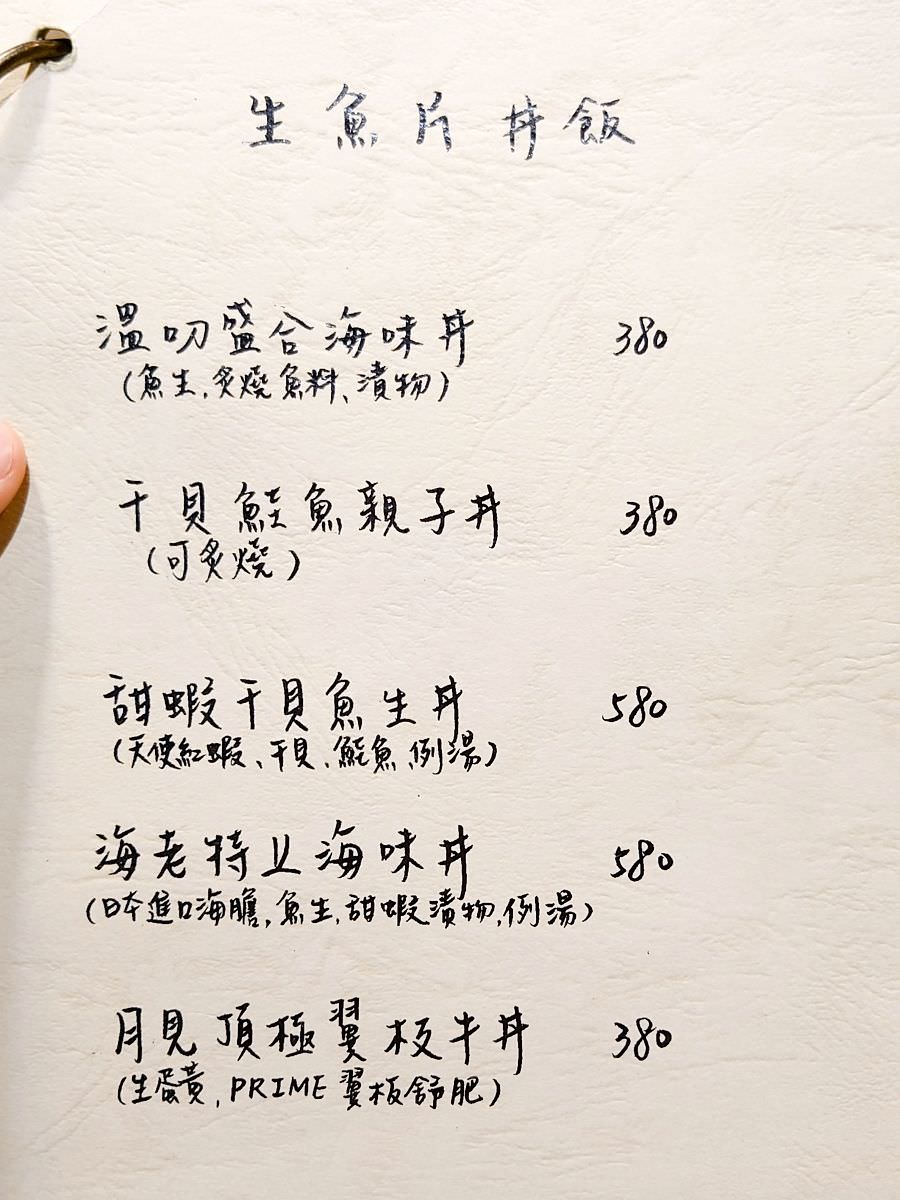 生魚片丼飯
溫叨盛合海味丼 380
(魚生,炙燒魚料、漬物)
干貝鮭魚親子丼 380
(可炙燒)
甜蝦干貝魚生丼 580
(天使紅蝦、干貝、鮭魚、例湯)
海老特上海味丼 580
(日本進口海膽,魚生,甜蝦漬物,例湯)
月見頂極翼板牛丼 380
(生蛋黃,PRIME翼板舒肥)